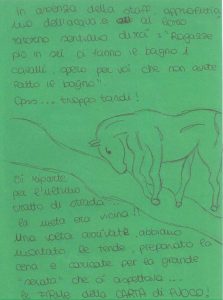 In assenza dello staff, approfittia
mo dell'acqua e al
ritorno sentiamo "Ragazze
più in su ci fanno il bagno i
cavalli, spero per voi che non avete
fatto il bagno".
Ops... troppo tardi!
Si riparte
per l'ultimo
tratto di strada...
la meta era vicina!!
Una volta arrivate abbiamo
montato le tende, preparato la
cena e caricate per la grande
serata che ci aspettava...
LE FIRME della CARTA di FUOCO!